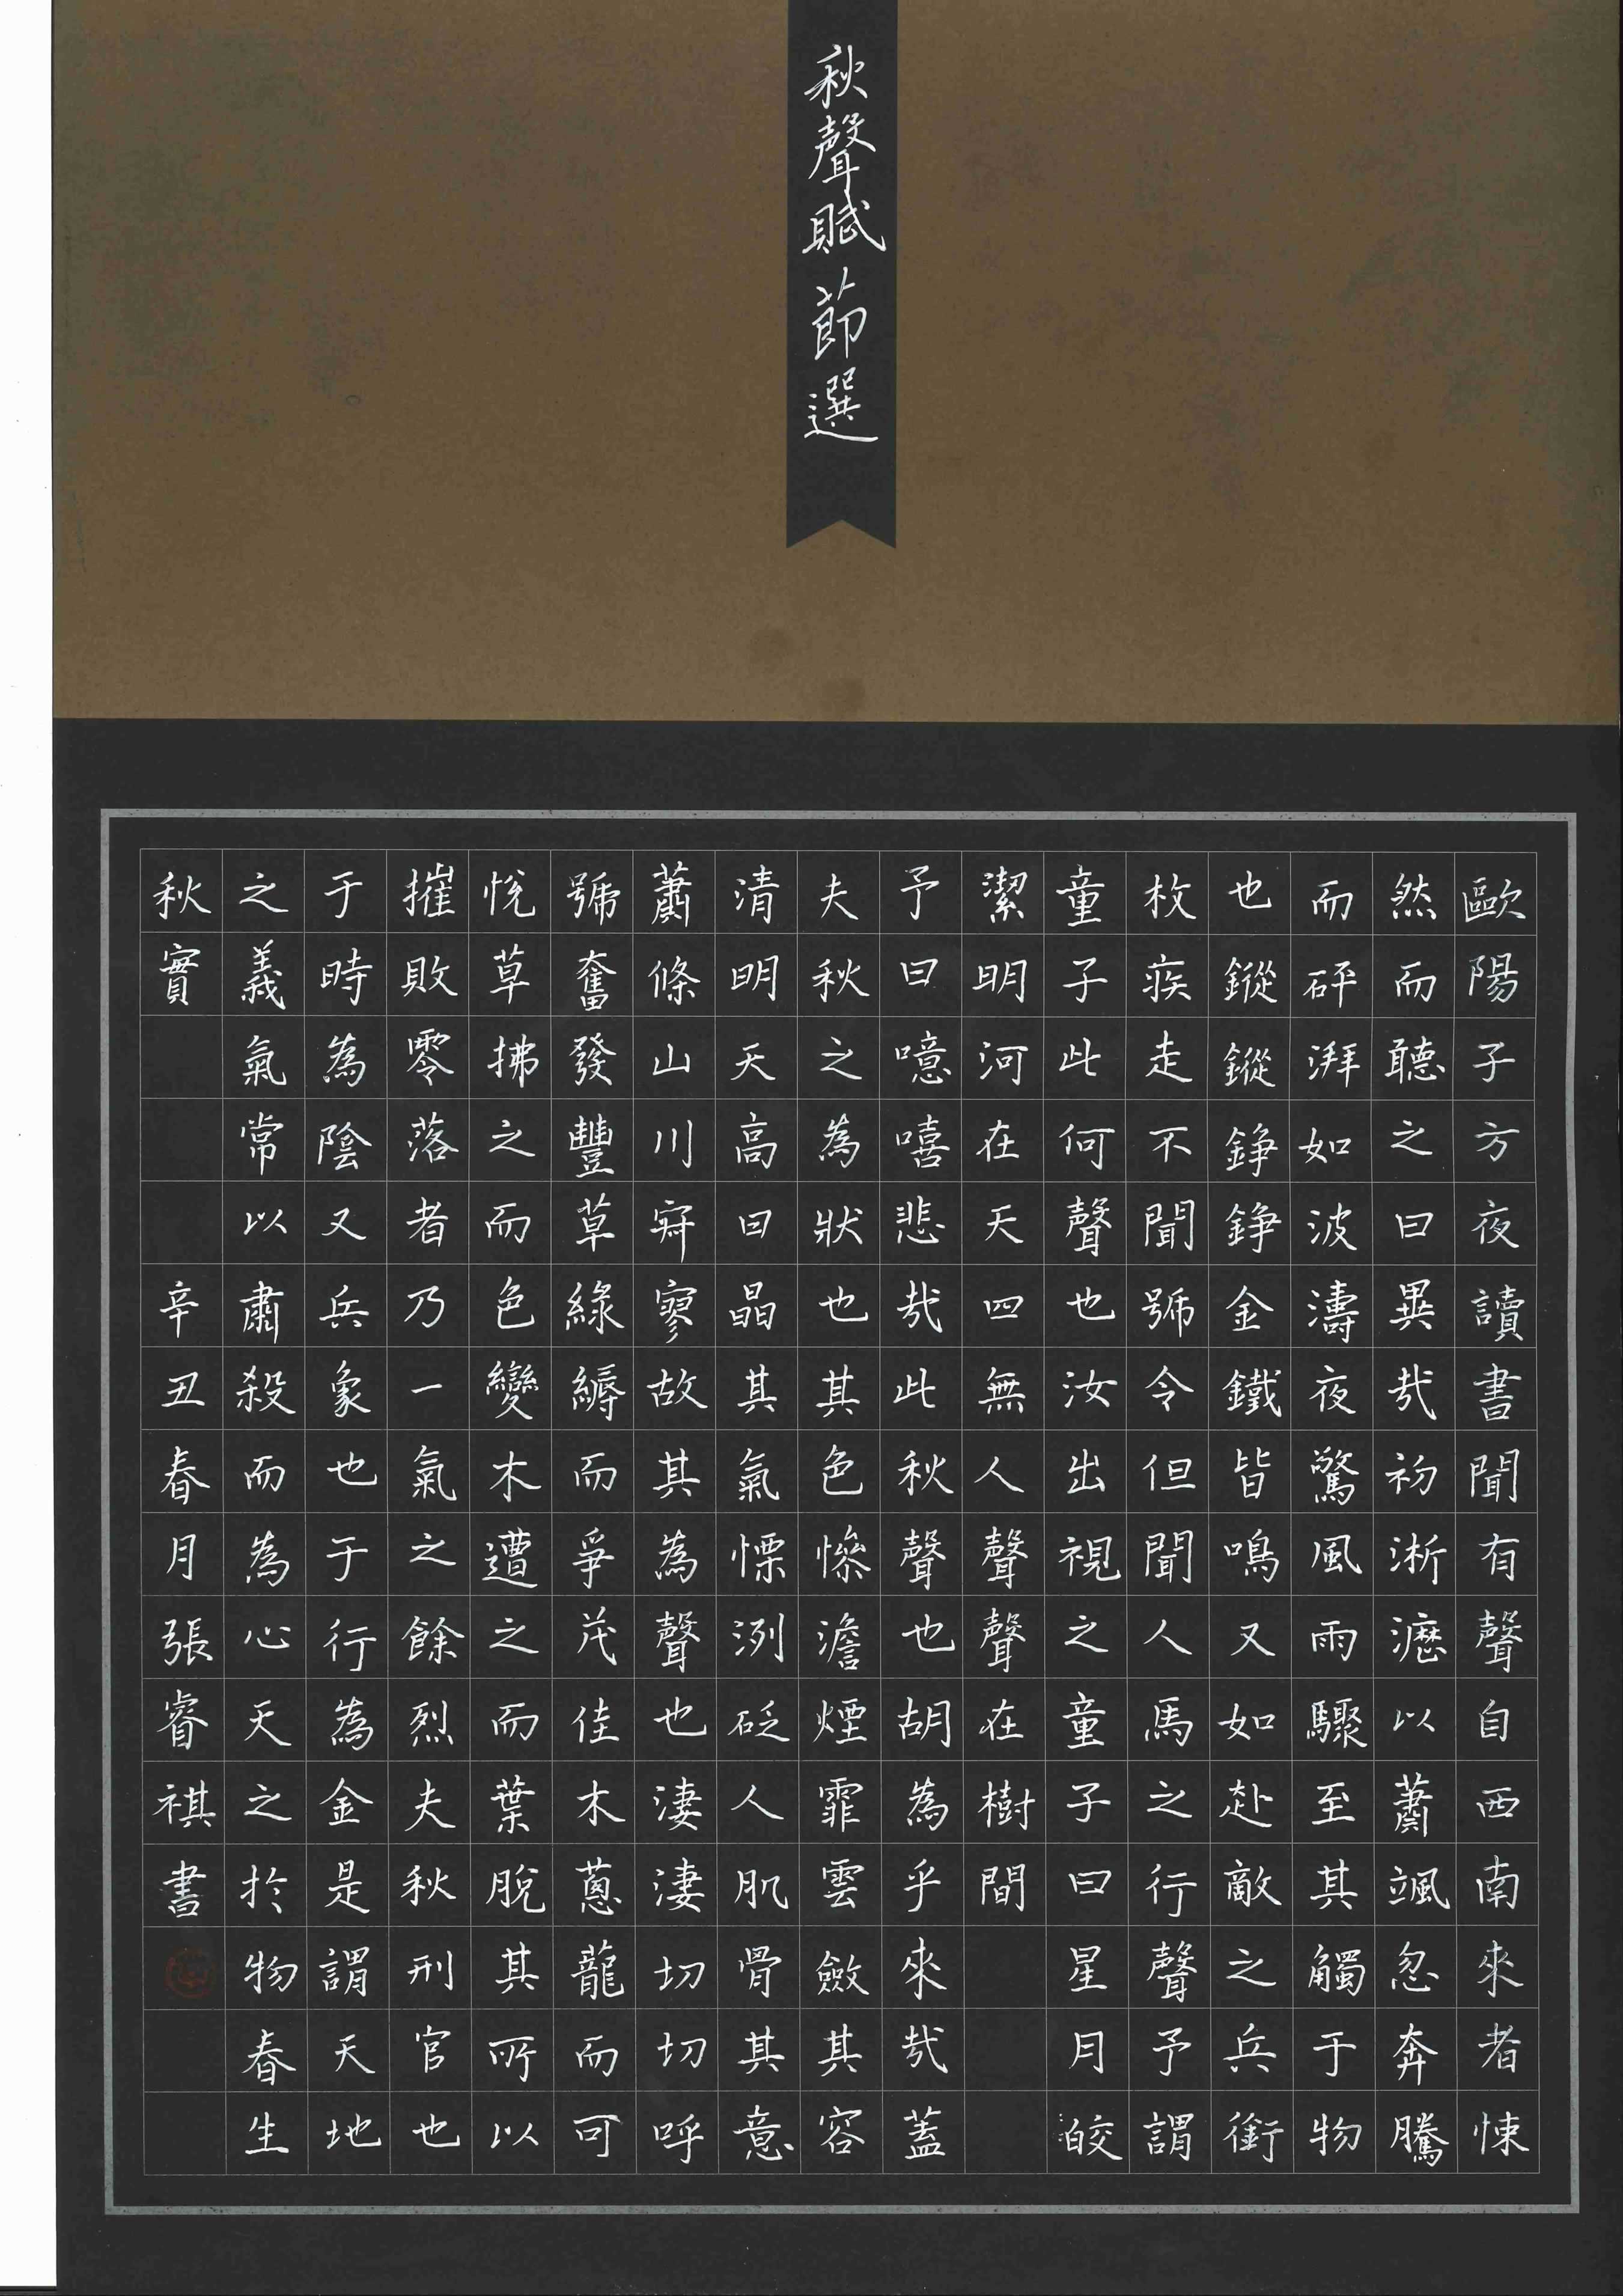 秋聲賦節選
歐陽子方夜讀書聞有聲自西南來者悚
然而聽之曰異哉初淅瀝以蕭颯忽奔騰
而砰湃如波濤夜驚風雨驟至其觸于物
也鏦鏦錚錚金鐵皆鳴又如赴敵之兵銜
枚疾走不聞號令但聞人馬之行聲予謂
童子此何聲也汝出視之童子曰星月皎
潔明河在天四無人聲聲在樹間
予曰噫嘻悲哉此秋聲也胡為乎來哉蓋
夫秋之為狀也其色慘澹煙霏雲斂其容
清明天高日晶其氣慄冽砭人肌骨其意
蕭條山川寂寥故其為聲也淒淒切切呼
號奮發豐草綠縟而爭茂佳木蔥蘢而可
悅草拂之而色變木遭之而葉脫其所以
摧敗零落者乃一氣之餘烈夫秋刑官也
于時為陰又兵象也于行為金是謂天地
之義氣常以肅殺而為心天之於物春生
秋實 辛丑春月張睿祺書